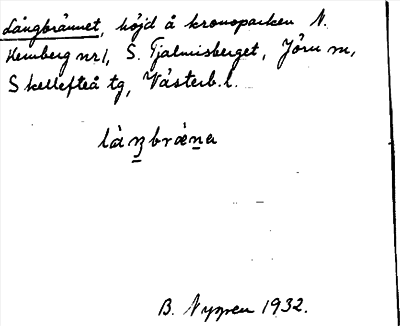 Långbrännet, höjd å kronoparken N.
Hemberg nr 1, S. Tjalmisberget, Jörn sn,
Skellefteå tg, Västerb. l.
làŋbrǽna
B. Nygren 1932.